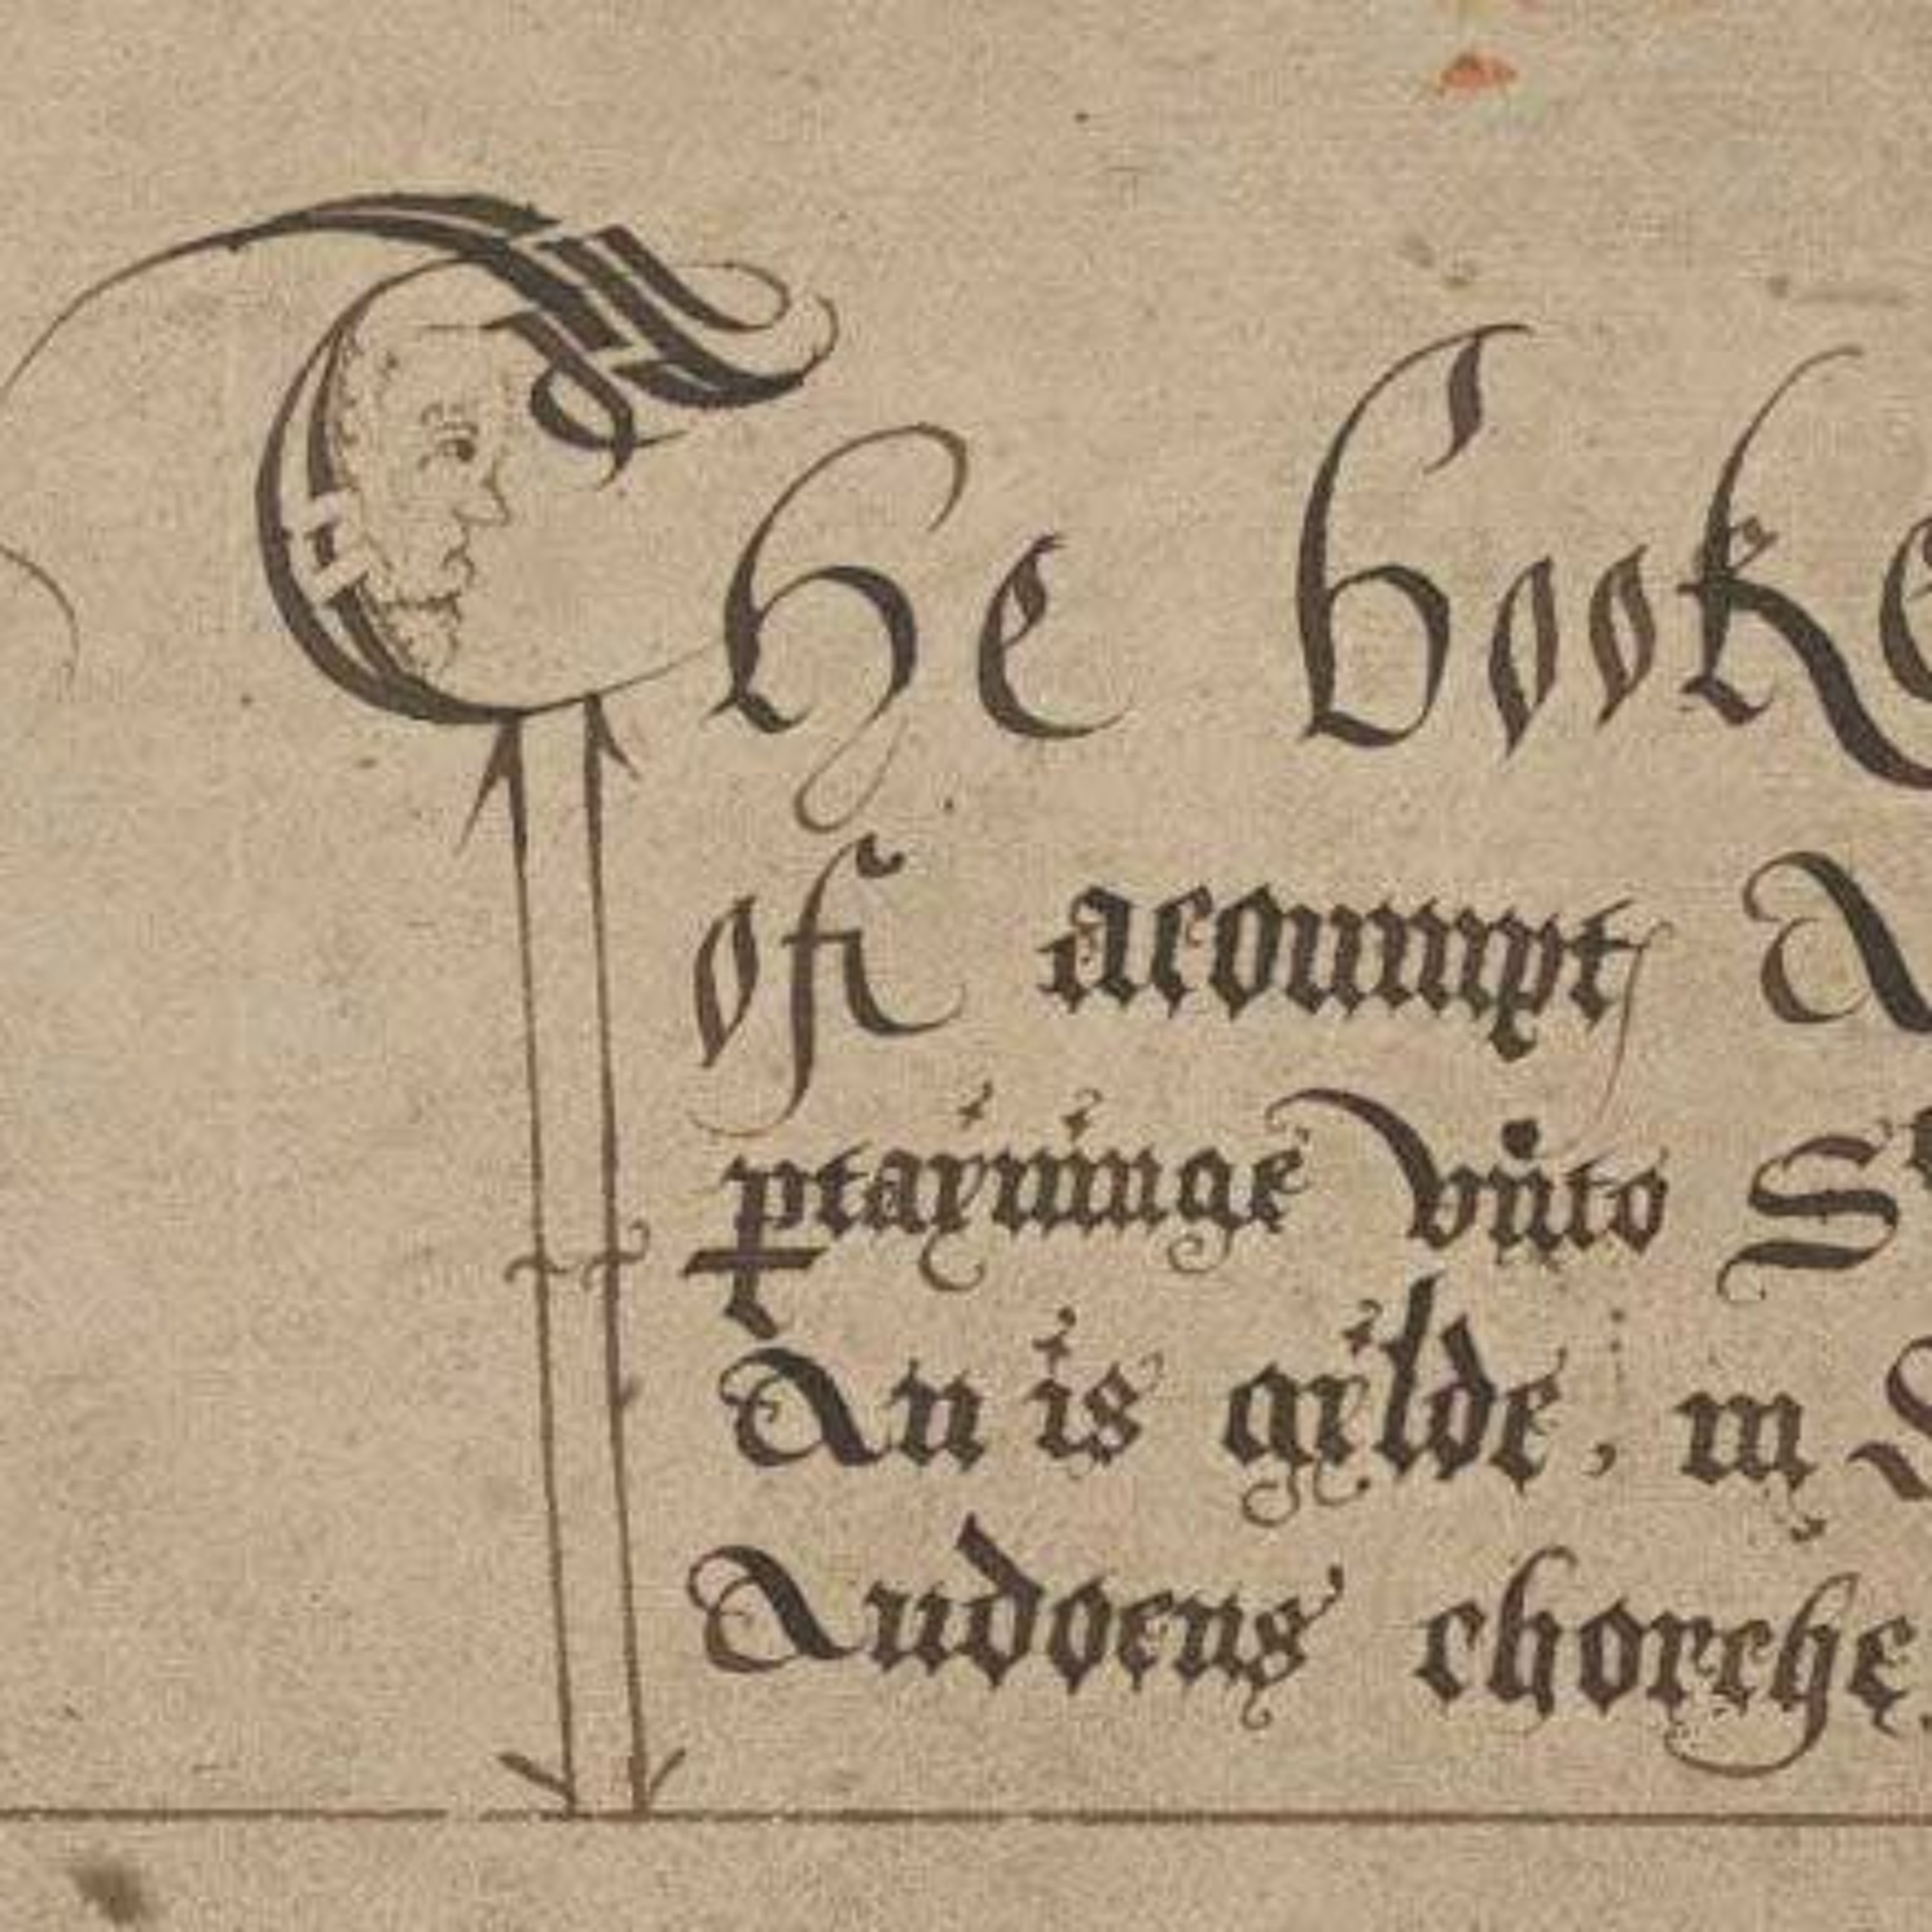 The booke
of acoumpt A
ptayninge vnto S
An is gilde, in S
Audoens chorche